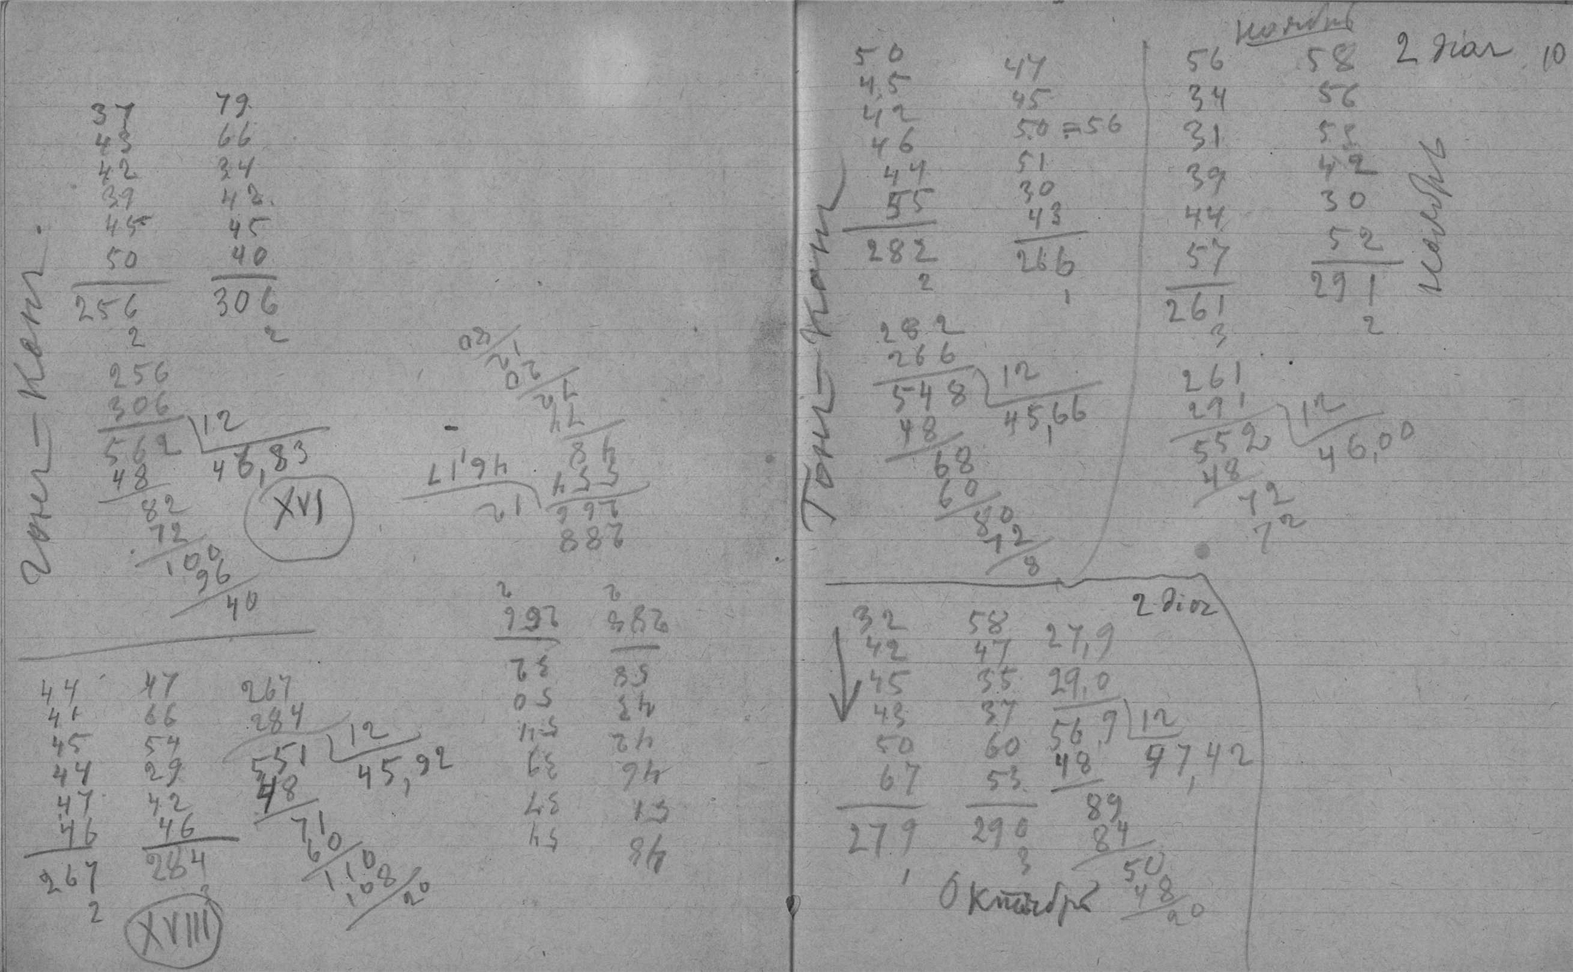 Гонг-Конг.
37 79
43 66
42 34
39 42
45 45
50 40
256 306
2 2
256
306
562 12
48 46,83
82
72
100
96
40
XVI
20
12
20
12
74
48
554 46,17
266 12
288
44 47 267
41 66 284
45 54 551 12
44 29 48 45,92
47 42 71
46 46 60
267 284 110
2 2 108
20
XVIII
48 54
51 37
46 39
42 54
43 50
58 32
283 266
2 2
Гонг-Конг
50 47
45 45
42 50=56
46 51
44 30
55 43
282 266
2 1
282
266
548 12
48 45,66
68
60
80
72
8
ноябрь
2 диаг. 10
56 58
34 56
31 53
39 42
44 30
57 52
261 291
3 2
ноябрь
261
291
552 12
48 46,00
72
72
2 диаг
32 58 27,9
42 47 29,0
45 35 56 9 12
43 37 48 47,42
50 60 89
67 53 84
279 290 50
1 3 48
20
Октябрь